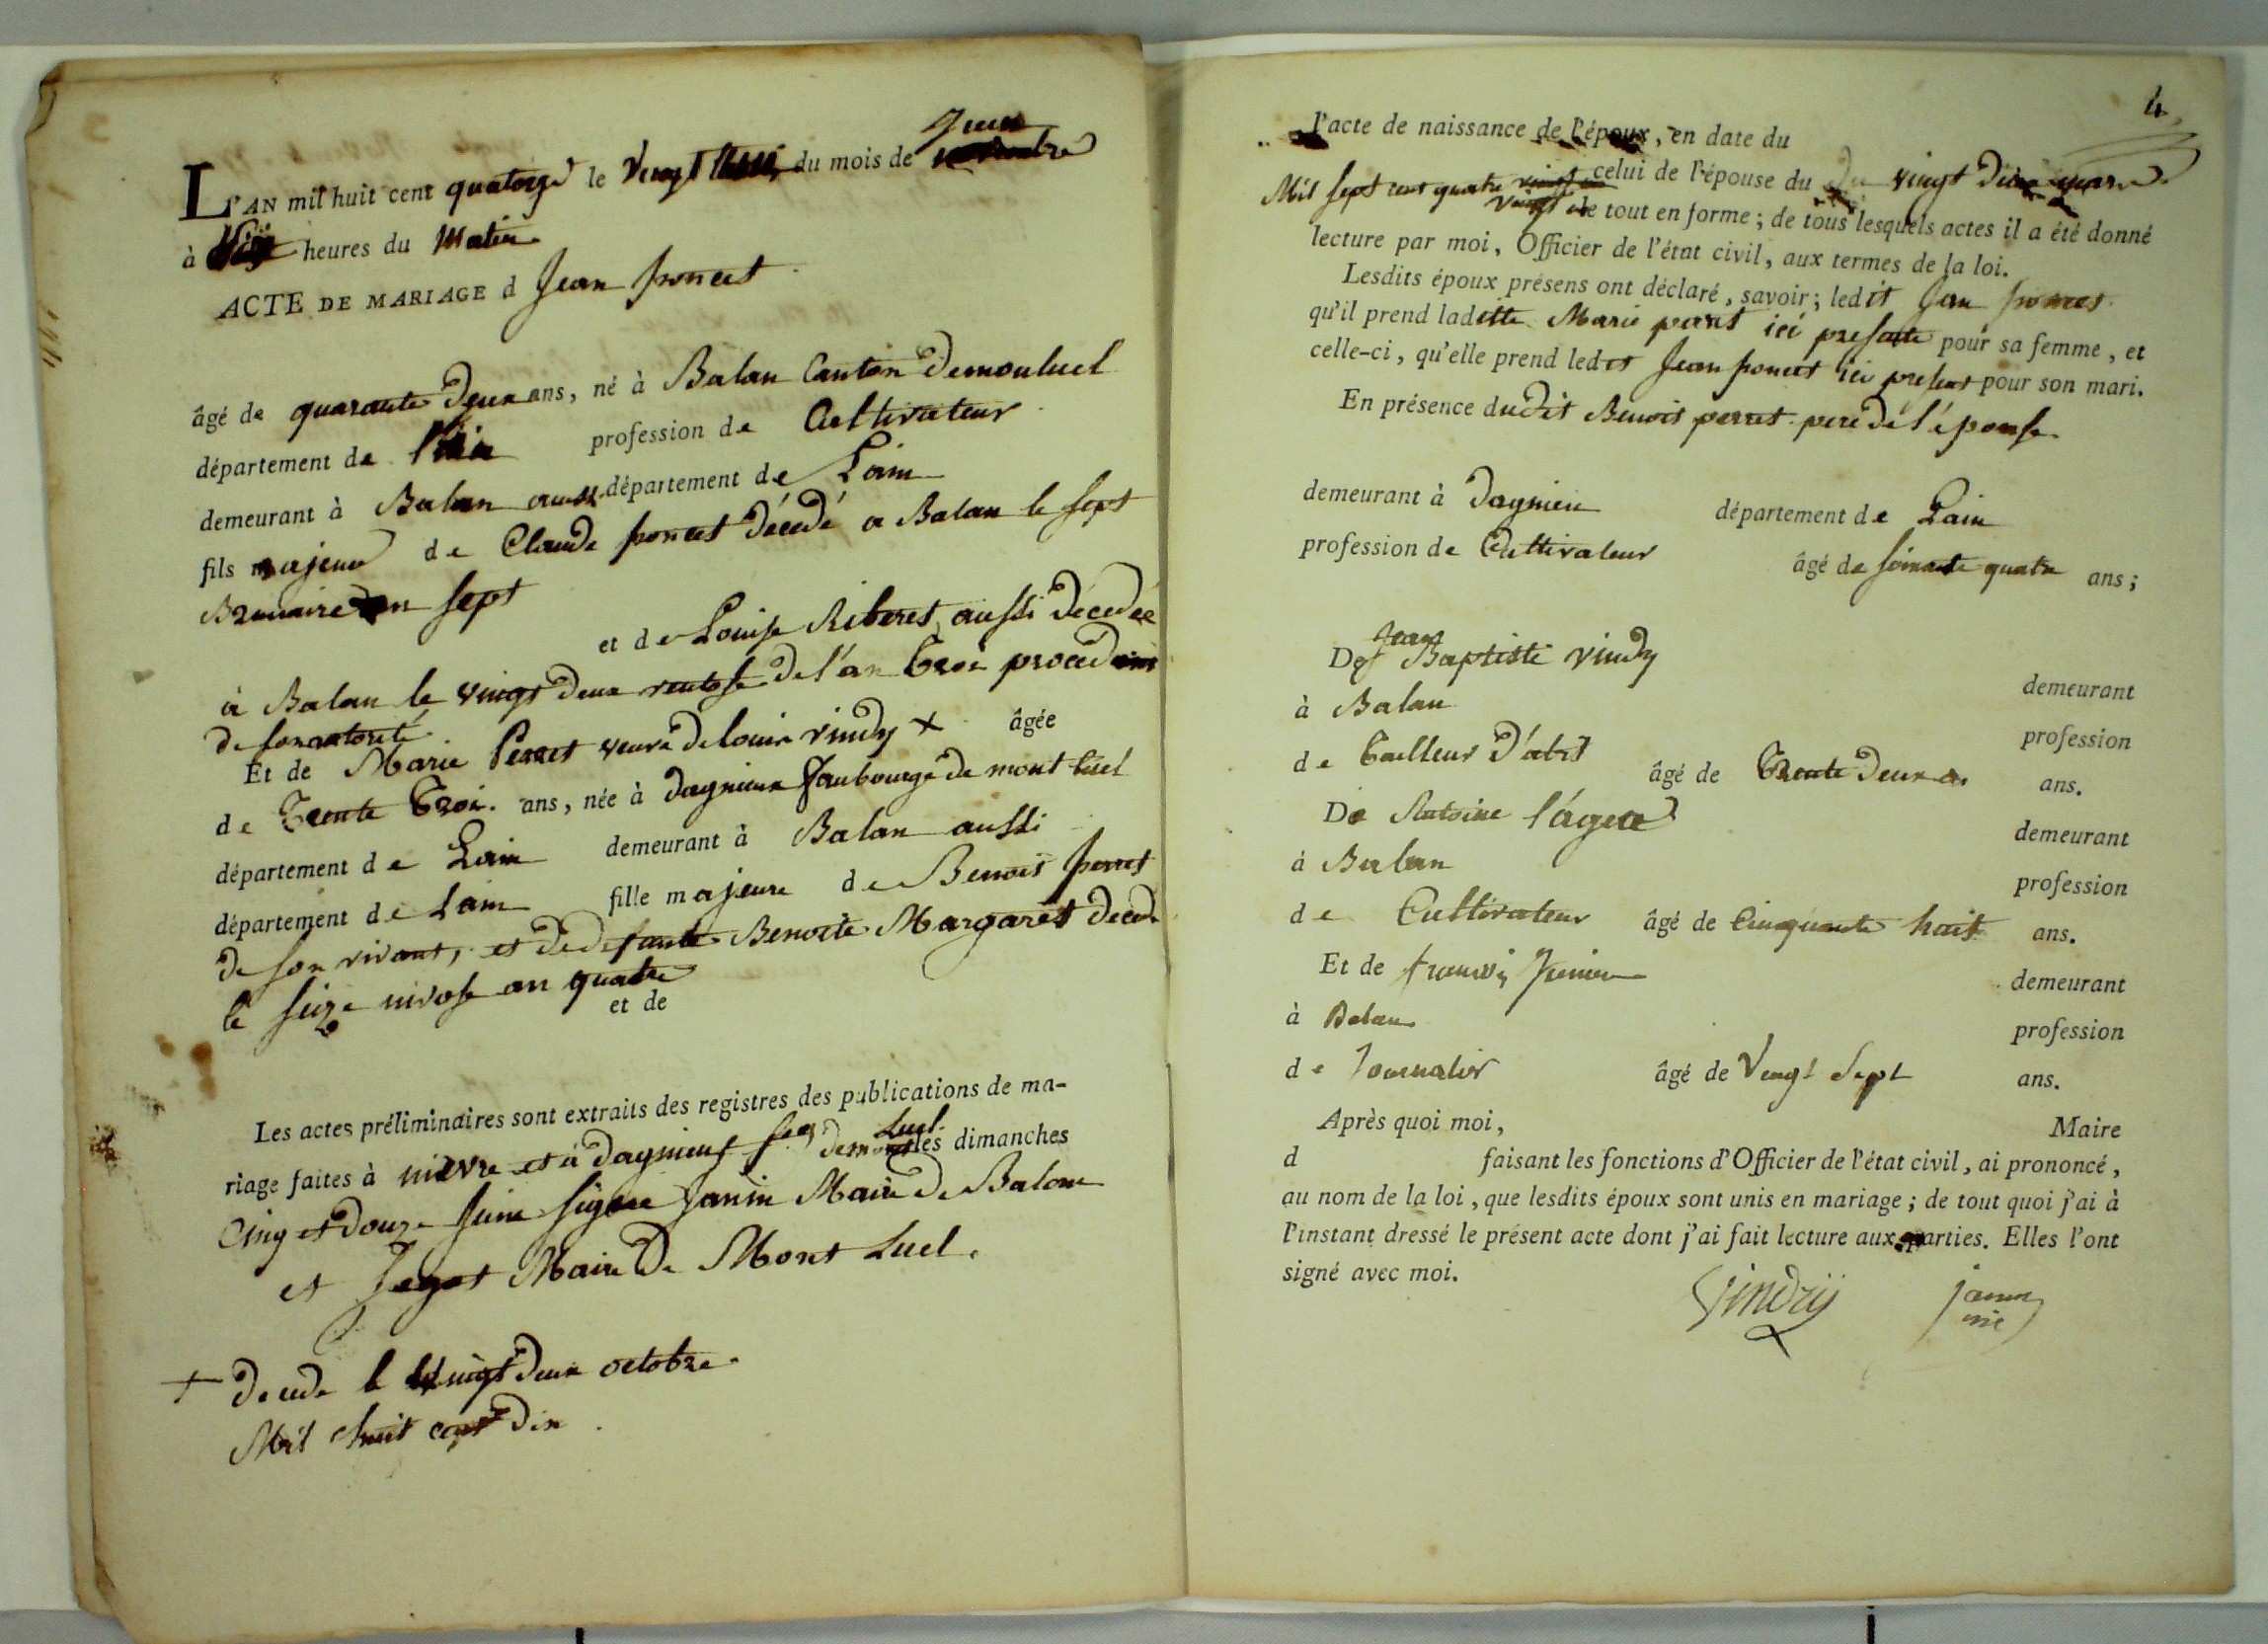 Juin
L'AN mil huit cent quatorze le vingt du mois de
à heures du Matin
ACTE DE MARIAGE d Jean poncet
âgé de quarante deux ans, né à Balan Canton demonluel
département de l'ain profession de Cultivateur
demeurant à Balan aussi département de Lain
fils majeur de Claude poncet décedé a Balan le sept
Brumaire an sept
et de Louise Riberet aussi décedée
à Balan le vingt deux ventose de l'an troi procedant
de son autorité
Et de Marie Perret veuve de louis vindry + âgée
de Trente Troi. ans, née à dagnieux faubourge de mont luel
département de Lain demeurant à Balan aussi
département de Lain fille majeure de Benoit perret
de son vivant, et de defunte Benoite Margaret decede
le seize nivose an quatre
et de
Les actes préliminaires sont extraits des registres des publications de ma-
luel
riage faites à nievre et à dagnieux fg demont les dimanches
Cinq et douze Juin signee Janin Maire de Balan
et Jayet Maire De Mont Luel.
+ decede le vingt deux octobre
Mil huit cent dix
4
l'acte de naissance de l'époux, en date du
celui de l'épouse du du vingt deux mars
Mil sept cent quatre vingt un
vingt de tout en forme; de tous lesquels actes il a été donné
lecture par moi, Officier de l'état civil, aux termes de la loi.
Lesdits époux présens ont déclaré, savoir; ledit Jean poncet
qu'il prend ladette Marie perret ici presante pour sa femme, et
celle-ci, qu'elle prend ledit Jean poncet ici present pour son mari.
En présence dudit Benoit perret pere de l'épouse
demeurant à dagnieu département de Lain
profession de Cultivateur âgé de soixante quatre ans;
Jean
De Baptiste vindry
demeurant
à Balan
profession
de Tailleur d'abit âgé de Trente deux ans.
De Antoine l'agea
demeurant
à Balan
profession
de Cultivateur âgé de Cinquante huit ans.
Et de francois Junien
demeurant
à Balan
profession
de Journalier âgé de Vingt Sept ans.
Après quoi moi, Maire
d faisant les fonctions d'Officier de l'état civil, ai prononcé,
au nom de la loi, que lesdits époux sont unis en mariage; de tout quoi j'ai à
l'instant dressé le présent acte dont j'ai fait lecture aux parties. Elles l'ont
signé avec moi.
Vindry janin